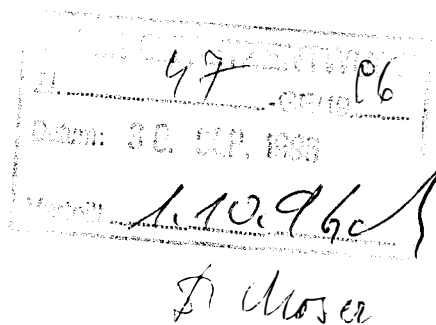 Zl. 47 -GE/19 96
Datum: 30. SEP. 1996
Verteilt 1.10.96
Dr Moser